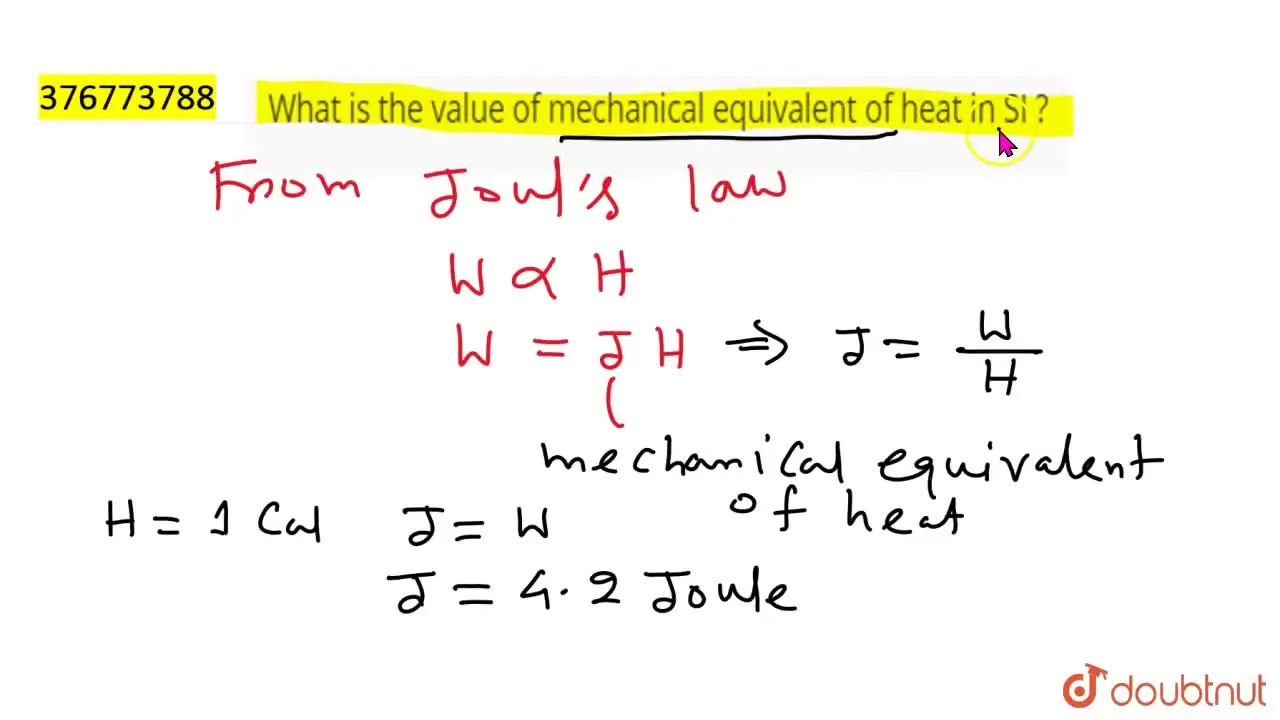 376773788
What is the value of mechanical equivalent of heat in SI ?
From Joul's law
W ∝ H
W = J H ⇒ J = W/H
mechanical equivalent
of heat
H = 1 Cal J = W
J = 4.2 Joule
doubtnut